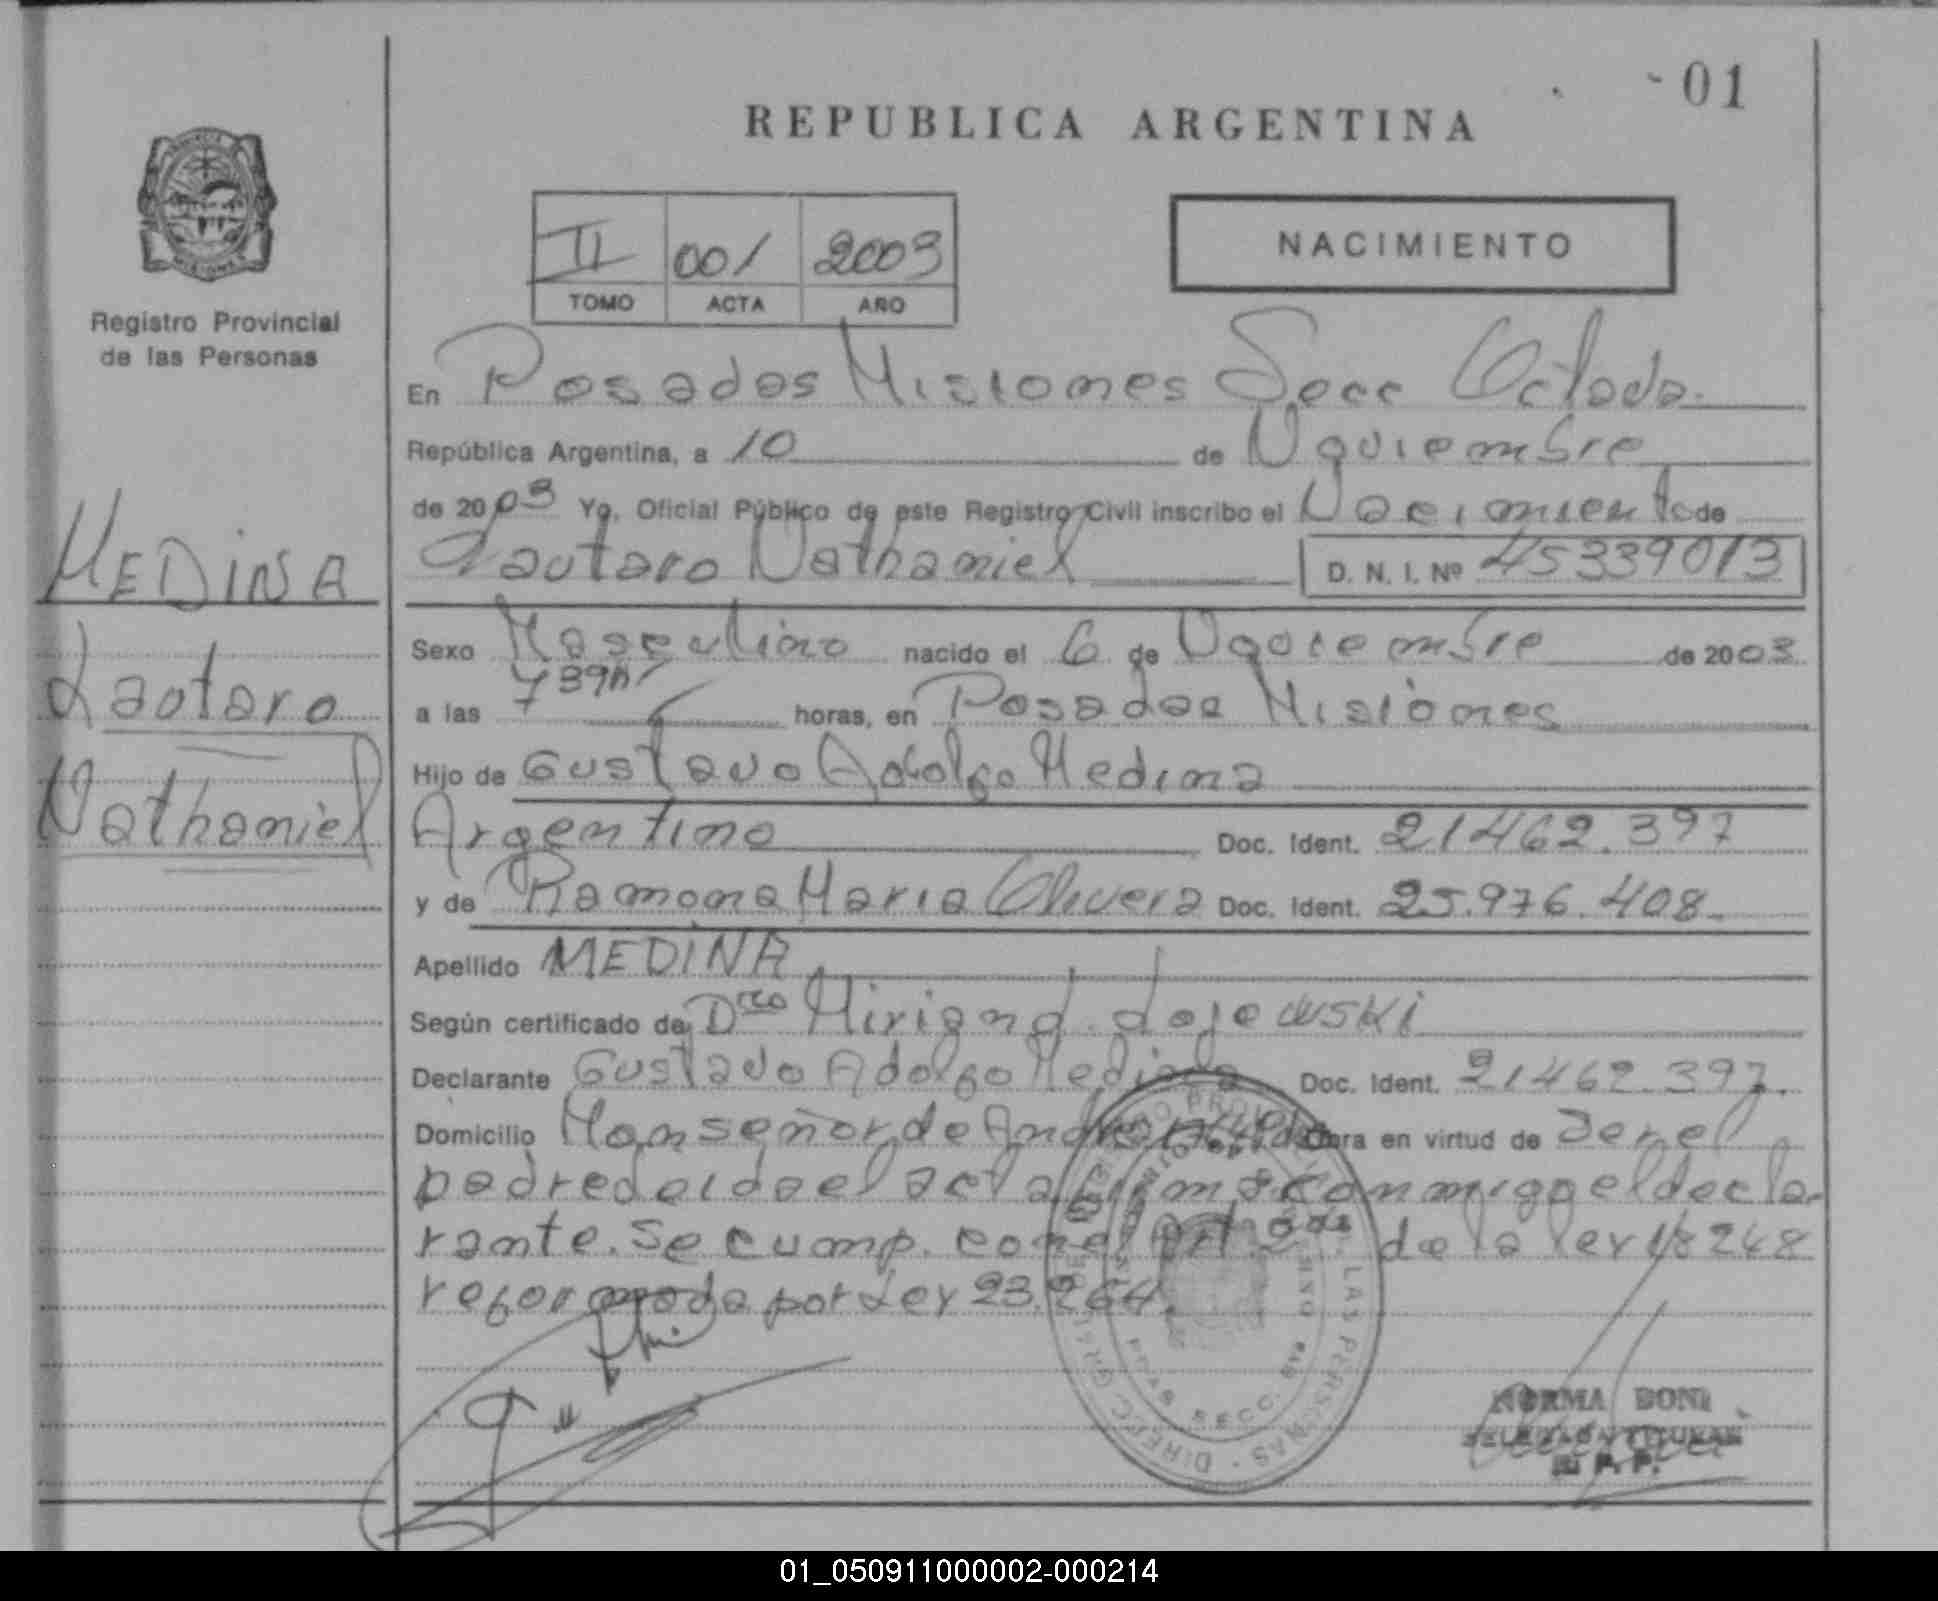 01
REPUBLICA ARGENTINA
II 001 2003
TOMO ACTA AÑO
NACIMIENTO
Registro Provincial
de las Personas
En Posadas Misiones Secc Octava
República Argentina, a 10 de Noviembre
de 2003 Yo, Oficial Público de este Registro Civil inscribo el Nacimiento de
Lautaro Nathaniel D. N. I. Nº 45339013
MEDINA
Lautaro
Nathaniel
Sexo Masculino nacido el 6 de Noviembre de 2003
a las 7 39 hs horas, en Posadas Misiones
Hijo de Gustavo Adolfo Medina
Argentino Doc. Ident. 21462.397
y de Ramona Maria Olivera Doc. Ident. 25.976.408
Apellido MEDINA
Según certificado de Dra Miriam
Declarante Gustavo Adolfo Medina Doc. Ident. 21462.397
Domicilio Monseñor de Andrea Obra en virtud de Ser el
padre Leida el acta firma conmigo el decla
rante. Se cump. con el Art 2do de la ley 18248
reformada por Ley 23.264.
LAS PERSONAS · DIRECC
SECC.
NORMA BONI
01_050911000002-000214